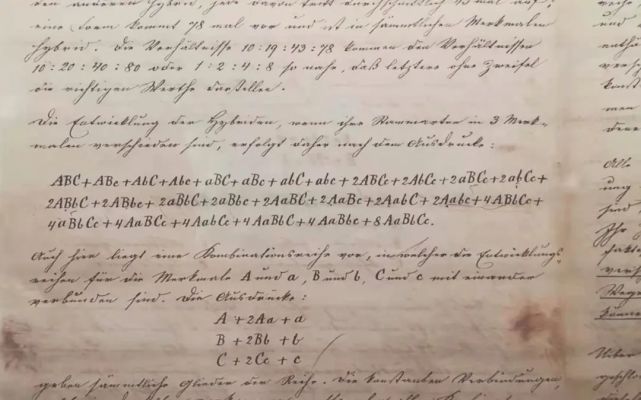 den anderen hybrid. Jede davon tritt durchschnittlich 43 mal auf;
eine Form kommt 78 mal vor und ist in sämmtlichen Merkmalen
hybrid. Die Verhältnisse 10:19:43:78 kommen den Verhältnissen
10:20:40:80 oder 1:2:4:8 so nahe, daß letztere ohne Zweifel
die richtigen Werthe darstellen.
Die Entwicklung der Hybriden, wenn ihre Stammarten in 3 Merk-
malen verschieden sind, erfolgt daher nach dem Ausdrucke:
ABC + ABc + AbC + Abc + aBC + aBc + abC + abc + 2ABCc + 2AbCc + 2aBCc + 2abCc +
2ABbC + 2ABbc + 2aBbC + 2aBbc + 2AaBC + 2AaBc + 2AabC + 2Aabc + 4ABbCc +
4aBbCc + 4AaBCc + 4AabCc + 4AaBbC + 4AaBbc + 8AaBbCc.
Auch hier liegt eine Kombinationsreihe vor, in welcher die Entwicklungs-
reihen für die Merkmale A und a, B und b, C und c mit einander
verbunden sind. Die Ausdrücke:
A + 2Aa + a
B + 2Bb + b
C + 2Cc + c
geben sämmtliche Glieder der Reihe. Die konstanten Verbindungen,
Alle
und
sind
Wege
können